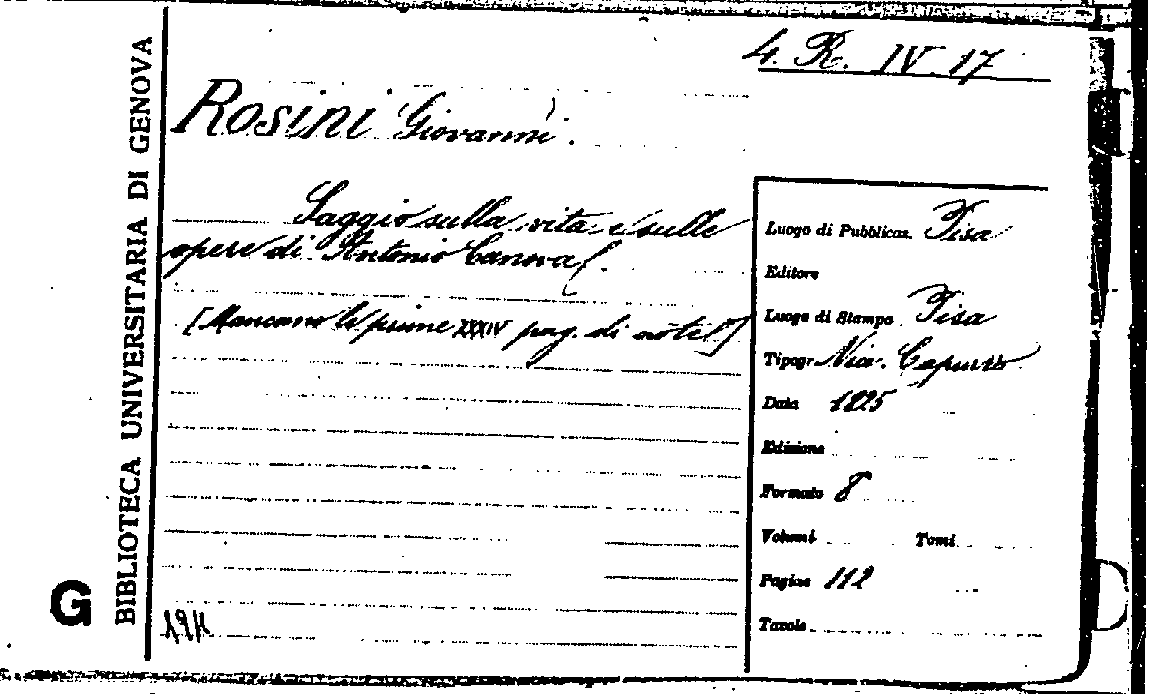 4. R. IV. 17
BIBLIOTECA UNIVERSITARIA DI GENOVA
G
Rosini Giovanni.
Saggio sulla vita e sulle
opere di Antonio Canova.
[Mancano le prime XXXIV pag. di note]
Luogo di Pubblicaz. Pisa
Editore
Luogo di Stampa Pisa
Tipogr. Nic. Capurro
Data 1825
Edizione
Formato 8
Volumi Tomi
Pagine 112
Tavole